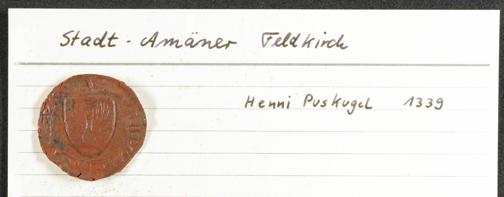 Stadt-Amäner Feldkirch
Henni Puskugel 1339